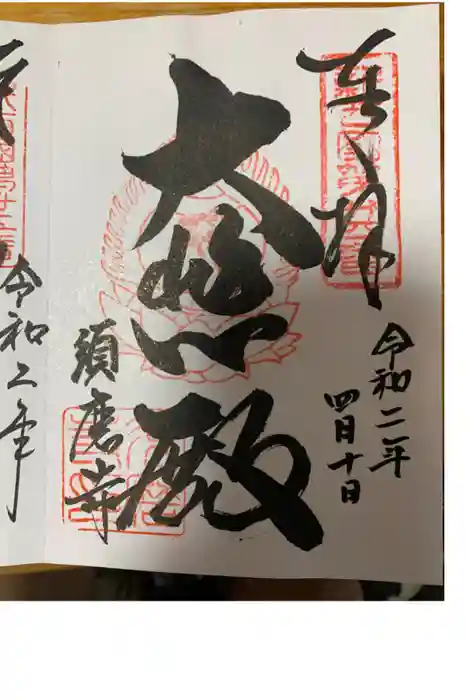 奉拝
令和二年
四月十日
大悲殿
須磨寺
令和二年